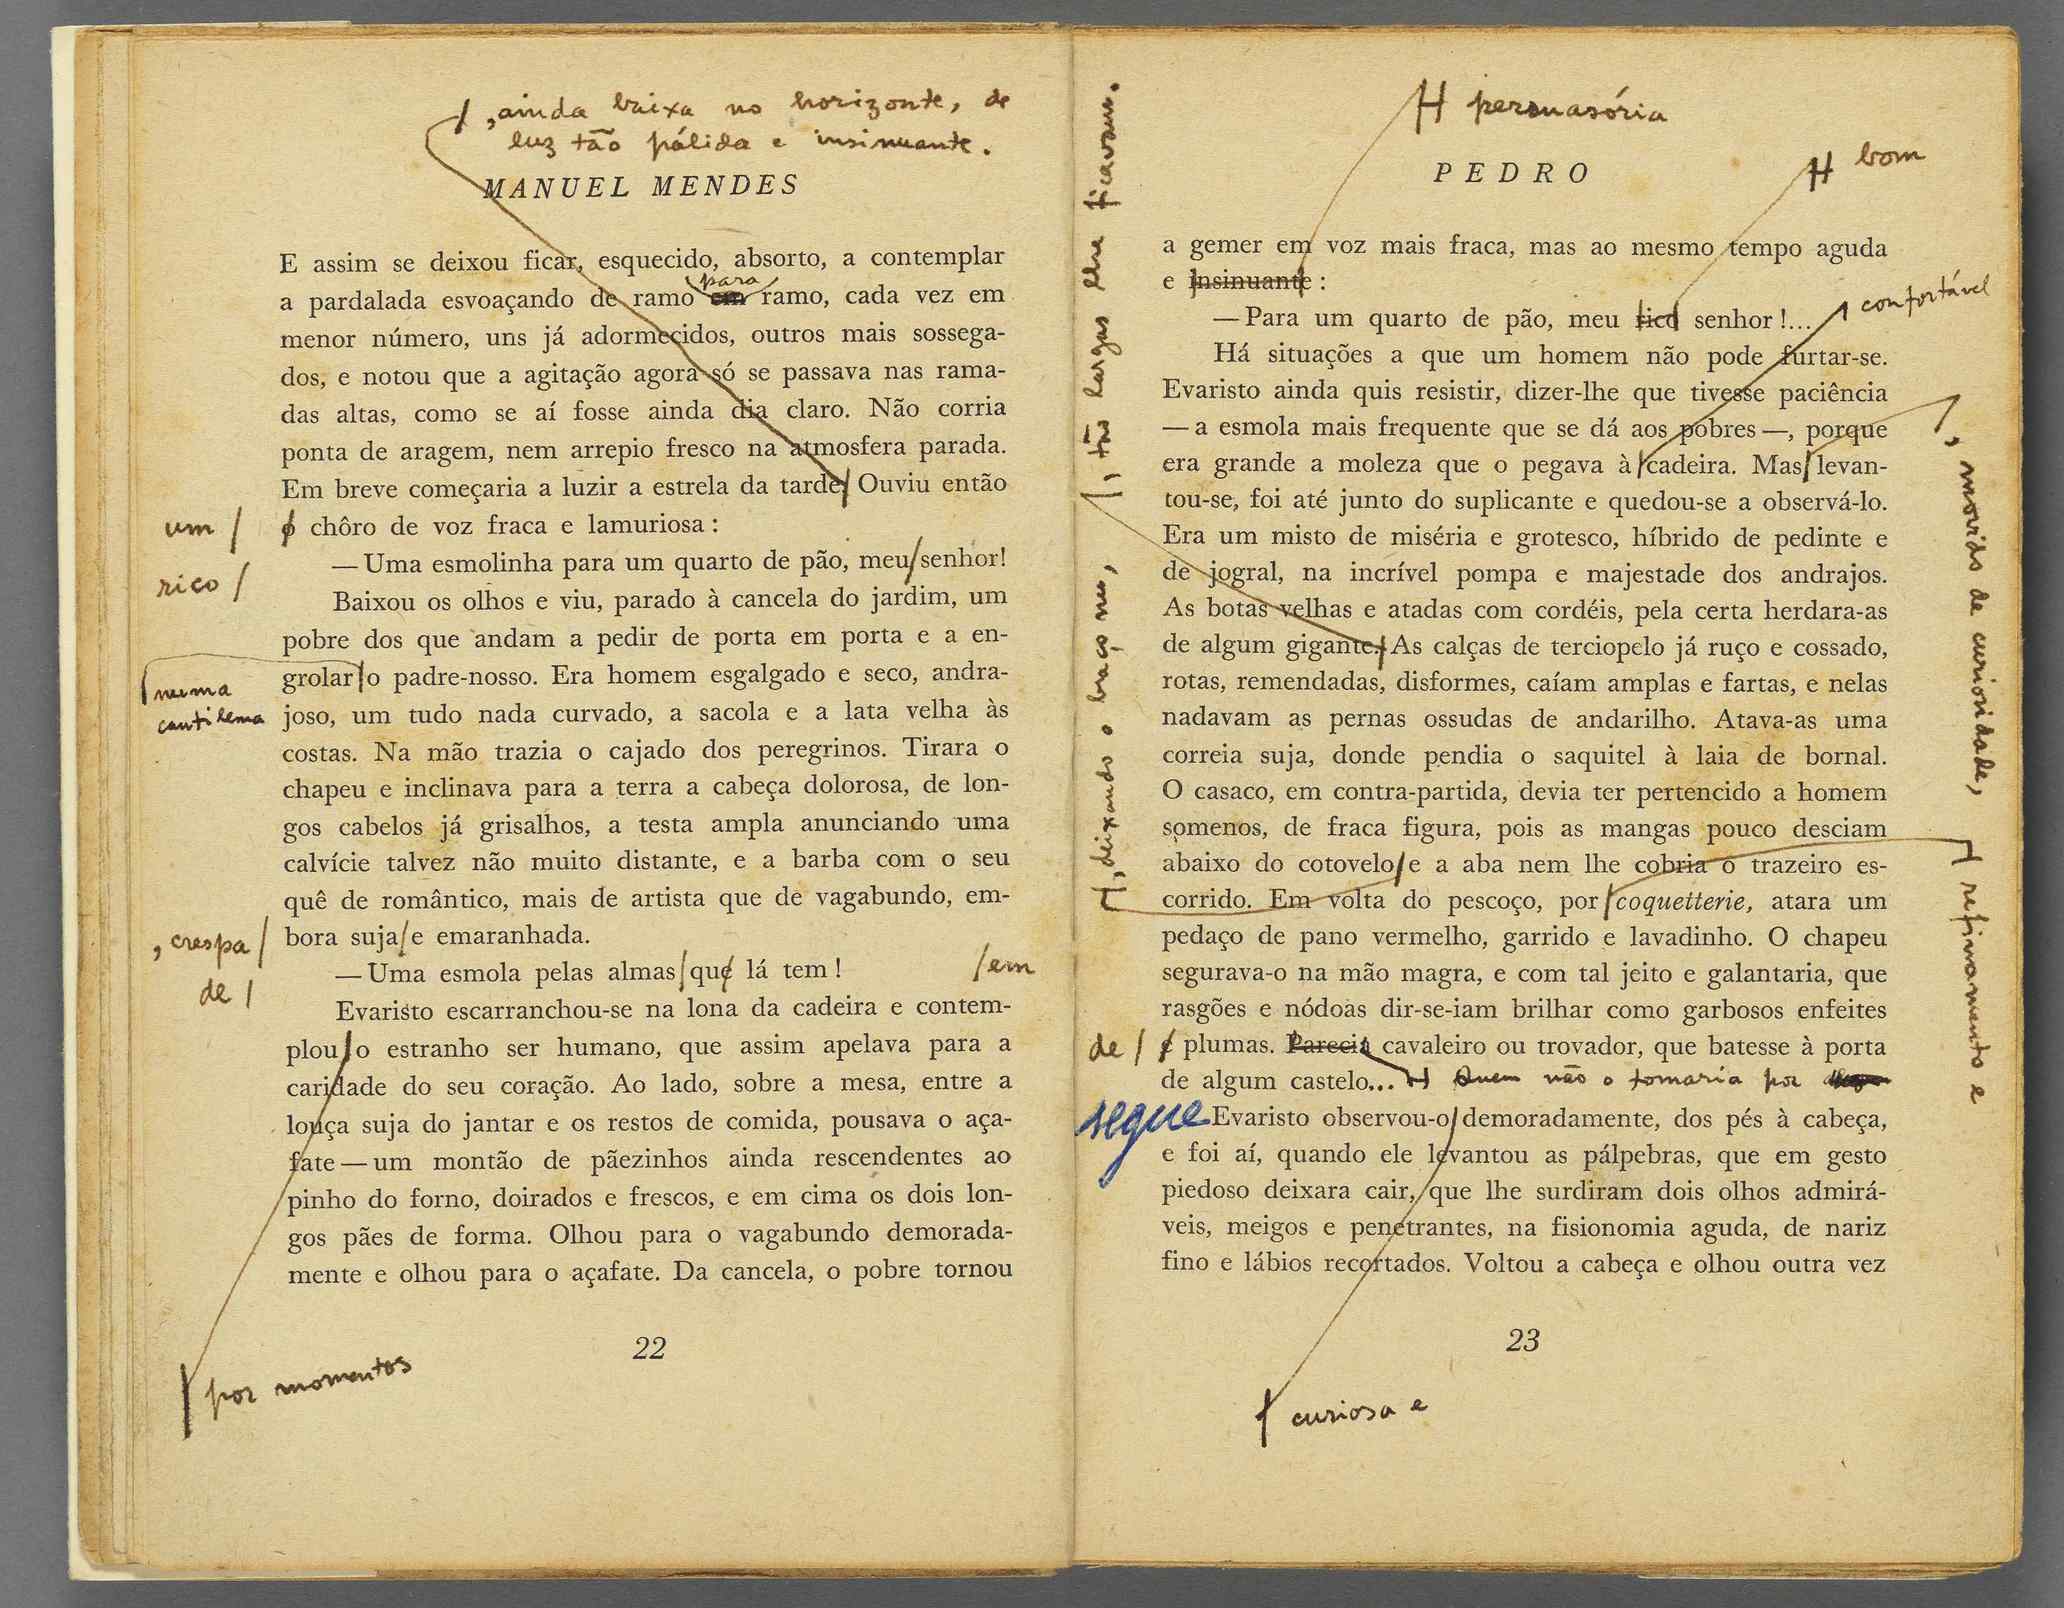 , ainda baixa no horizonte, de
luz tão pálida e insinuante.
MANUEL MENDES
E assim se deixou ficar, esquecido, absorto, a contemplar
para
a pardalada esvoaçando de ramo em ramo, cada vez em
menor número, uns já adormecidos, outros mais sossega-
dos, e notou que a agitação agora só se passava nas rama-
das altas, como se aí fosse ainda dia claro. Não corria
ponta de aragem, nem arrepio fresco na atmosfera parada.
Em breve começaria a luzir a estrela da tarde. Ouviu então
um / o chôro de voz fraca e lamuriosa :
— Uma esmolinha para um quarto de pão, meu senhor!
rico /
Baixou os olhos e viu, parado à cancela do jardim, um
pobre dos que andam a pedir de porta em porta e a en-
grolar o padre-nosso. Era homem esgalgado e seco, andra-
numa
cantilena
joso, um tudo nada curvado, a sacola e a lata velha às
costas. Na mão trazia o cajado dos peregrinos. Tirara o
chapeu e inclinava para a terra a cabeça dolorosa, de lon-
gos cabelos já grisalhos, a testa ampla anunciando uma
calvície talvez não muito distante, e a barba com o seu
quê de romântico, mais de artista que de vagabundo, em-
, crespa / bora suja e emaranhada.
— Uma esmola pelas almas que lá tem ! / em
de /
Evaristo escarranchou-se na lona da cadeira e contem-
plou o estranho ser humano, que assim apelava para a
caridade do seu coração. Ao lado, sobre a mesa, entre a
louça suja do jantar e os restos de comida, pousava o aça-
fate — um montão de pãezinhos ainda rescendentes ao
pinho do forno, doirados e frescos, e em cima os dois lon-
gos pães de forma. Olhou para o vagabundo demorada-
mente e olhou para o açafate. Da cancela, o pobre tornou
22
por momentos
persuasória
bom
PEDRO
a gemer em voz mais fraca, mas ao mesmo tempo aguda
e insinuante :
— Para um quarto de pão, meu rico senhor !...
confortável
Há situações a que um homem não pode furtar-se.
Evaristo ainda quis resistir, dizer-lhe que tivesse paciência
— a esmola mais frequente que se dá aos pobres —, porque
era grande a moleza que o pegava à cadeira. Mas levan-
, movido de curiosidade,
tou-se, foi até junto do suplicante e quedou-se a observá-lo.
Era um misto de miséria e grotesco, híbrido de pedinte e
de jogral, na incrível pompa e majestade dos andrajos.
As botas velhas e atadas com cordéis, pela certa herdara-as
de algum gigante. As calças de terciopelo já ruço e cossado,
, tão largas lhe ficavam.
rotas, remendadas, disformes, caíam amplas e fartas, e nelas
nadavam as pernas ossudas de andarilho. Atava-as uma
correia suja, donde pendia o saquitel à laia de bornal.
O casaco, em contra-partida, devia ter pertencido a homem
somenos, de fraca figura, pois as mangas pouco desciam
abaixo do cotovelo e a aba nem lhe cobria o trazeiro es-
, deixando o braço nu,
corrido. Em volta do pescoço, por coquetterie, atara um
refinamento e
pedaço de pano vermelho, garrido e lavadinho. O chapeu
segurava-o na mão magra, e com tal jeito e galantaria, que
rasgões e nódoas dir-se-iam brilhar como garbosos enfeites
de / e plumas. Parecia cavaleiro ou trovador, que batesse à porta
de algum castelo... Quem não o tomaria por
segue Evaristo observou-o demoradamente, dos pés à cabeça,
e foi aí, quando ele levantou as pálpebras, que em gesto
piedoso deixara cair, que lhe surdiram dois olhos admirá-
veis, meigos e penetrantes, na fisionomia aguda, de nariz
fino e lábios recortados. Voltou a cabeça e olhou outra vez
23
curiosa e